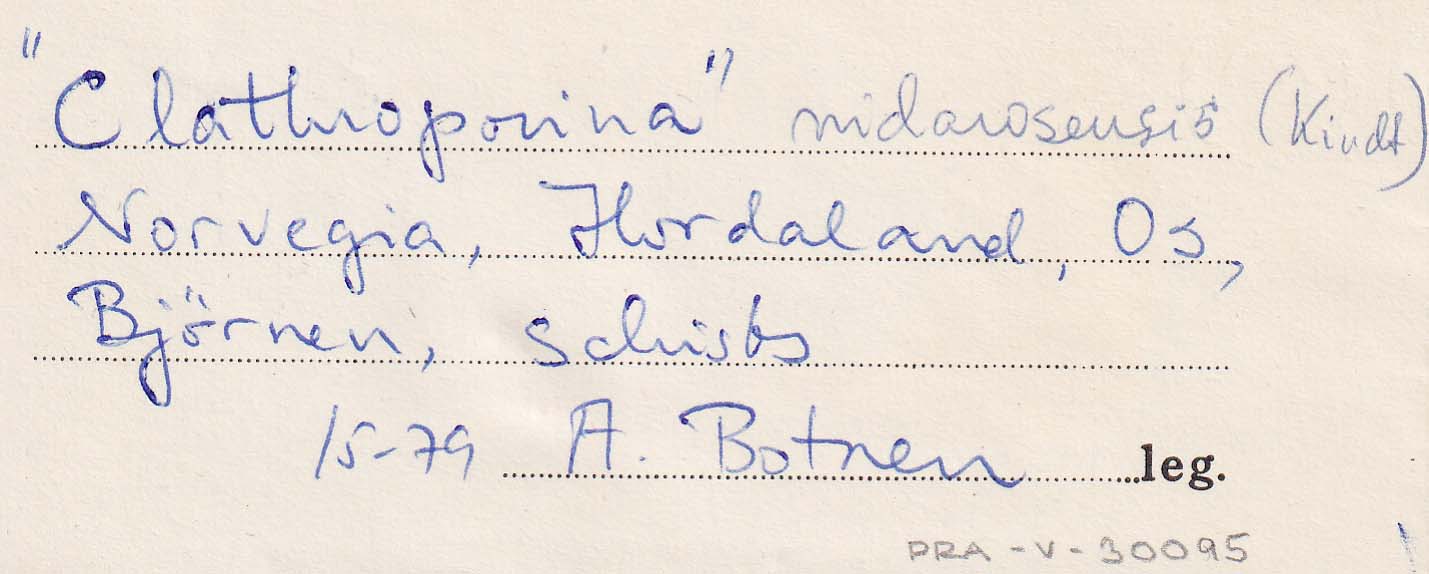 "Clathroporina" nidarosensis (Kindt)
Norvegia, Hordaland, Os,
Björnen, schists
15-79 A. Botnen leg.
PRA-V-30095